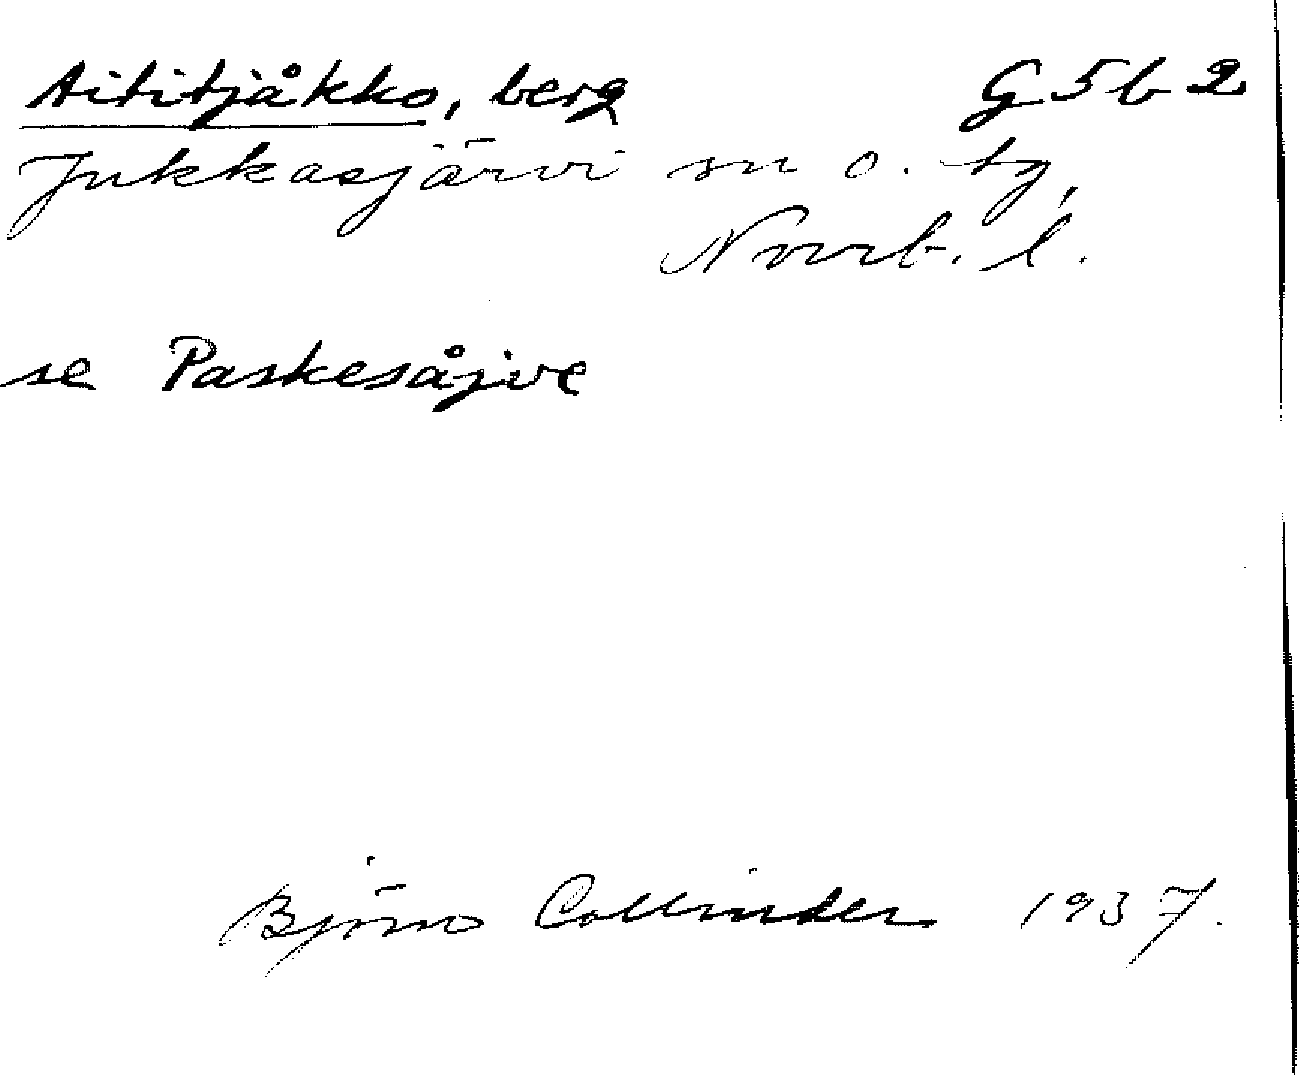 Aititjåkko, berg G5b2
Jukkasjärvi sn o. tg,
Norrb. l.
se Paskesåjve
Björn Collinder 1937.